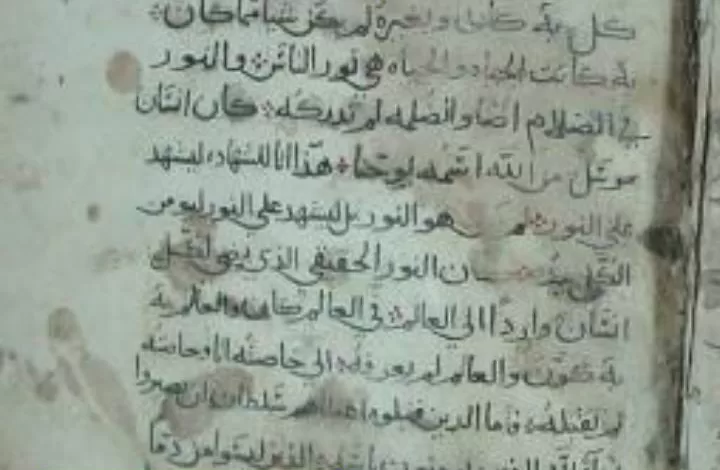 كل به كان وبغيره لم يكن شيا مما كان
به كانت الحياه والحياه هي نور الناس والنور
في الظلام اضا والضلمه لم تدركه كان انسان
مرسل من الله اسمه يوحنا هذا اتا للشهاده ليشهد
على النور هو النور بل ليشهد على النور ليومن
الكل كان النور الحقيقي الذي يضي لكل
انسان واردا الى العالم في العالم كان والعالم به
به كون والعالم لم يعرفه الى خاصته اتا وخاصته
لم تقبله فاما الذين قبلوه اعطاهم سلطان ان يصيروا
الذين ليسوا من دما